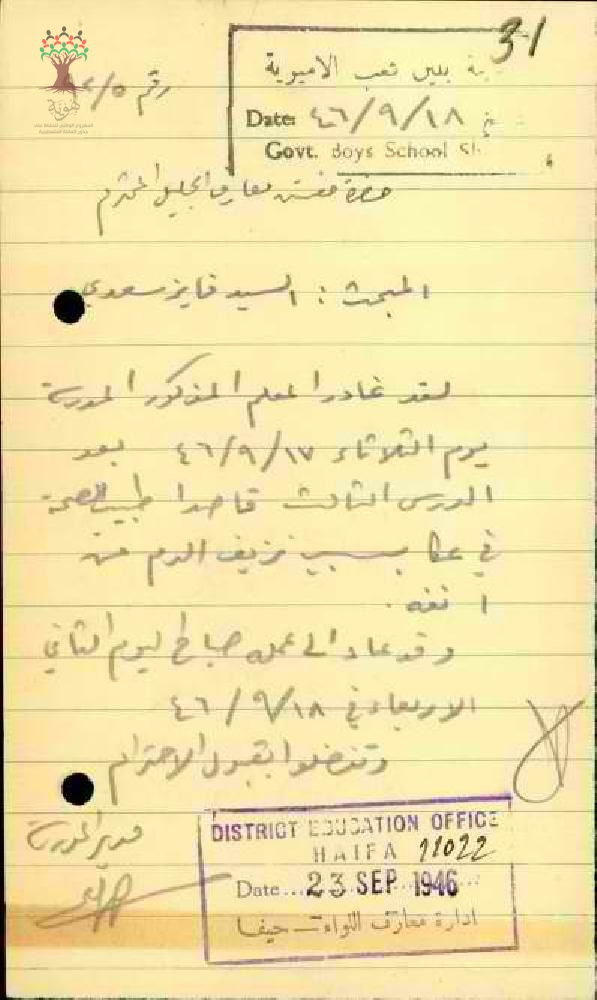 31
رقم ٥/
بنين شعب الاميرية
Date: ٤٦/٩/١٨
Govt. Boys School Sh
هوية
حضرة مفتش معارف الجليل المحترم
المبحث : السيد فايز سعدي
لقد غادر المعلم المذكور المدرسة
يوم الثلاثاء ٤٦/٩/١٧ بعد
الدرس الثالث قاصدا طبيب الصحة
في عكا بسبب نزيف الدم من
انفه .
وقد عاد الى عمله صباح اليوم الثاني
الاربعاء في ٤٦/٩/١٨
وتفضلوا بقبول الاحترام
مدير المدرسة
DISTRICT EDUCATION OFFICE
HAIFA 11022
Date... 23 SEP. 1946
ادارة معارف اللواء - حيفا